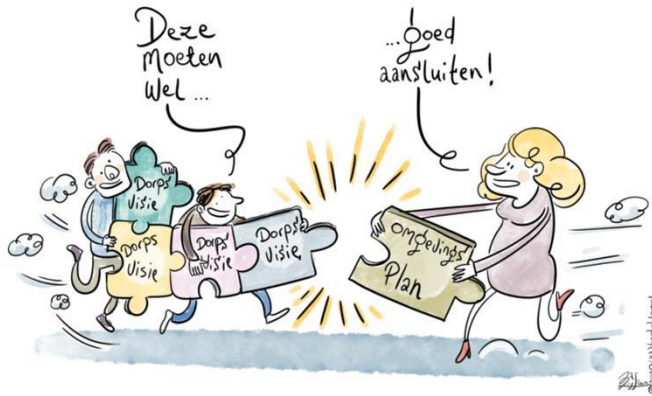 Deze
moeten
wel ...
...goed
aansluiten!
Dorps
Visie
Dorps
Visie
Dorps
Visie
Dorps
Visie
omgevings
Plan